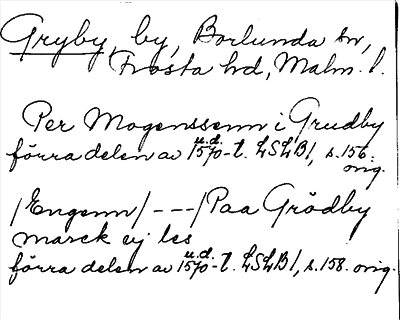 Gryby, by, Borlunda sn,
Frosta hd, Malm. l.
Per Mogenssenn i Grudby
förra delen av u.d. 1570-t. LSLB1, s.156.
orig.
/Engenn/---/Paa Grödby
marck ej les
förra delen av u.d. 1570-t. LSLB1, s.158. orig.